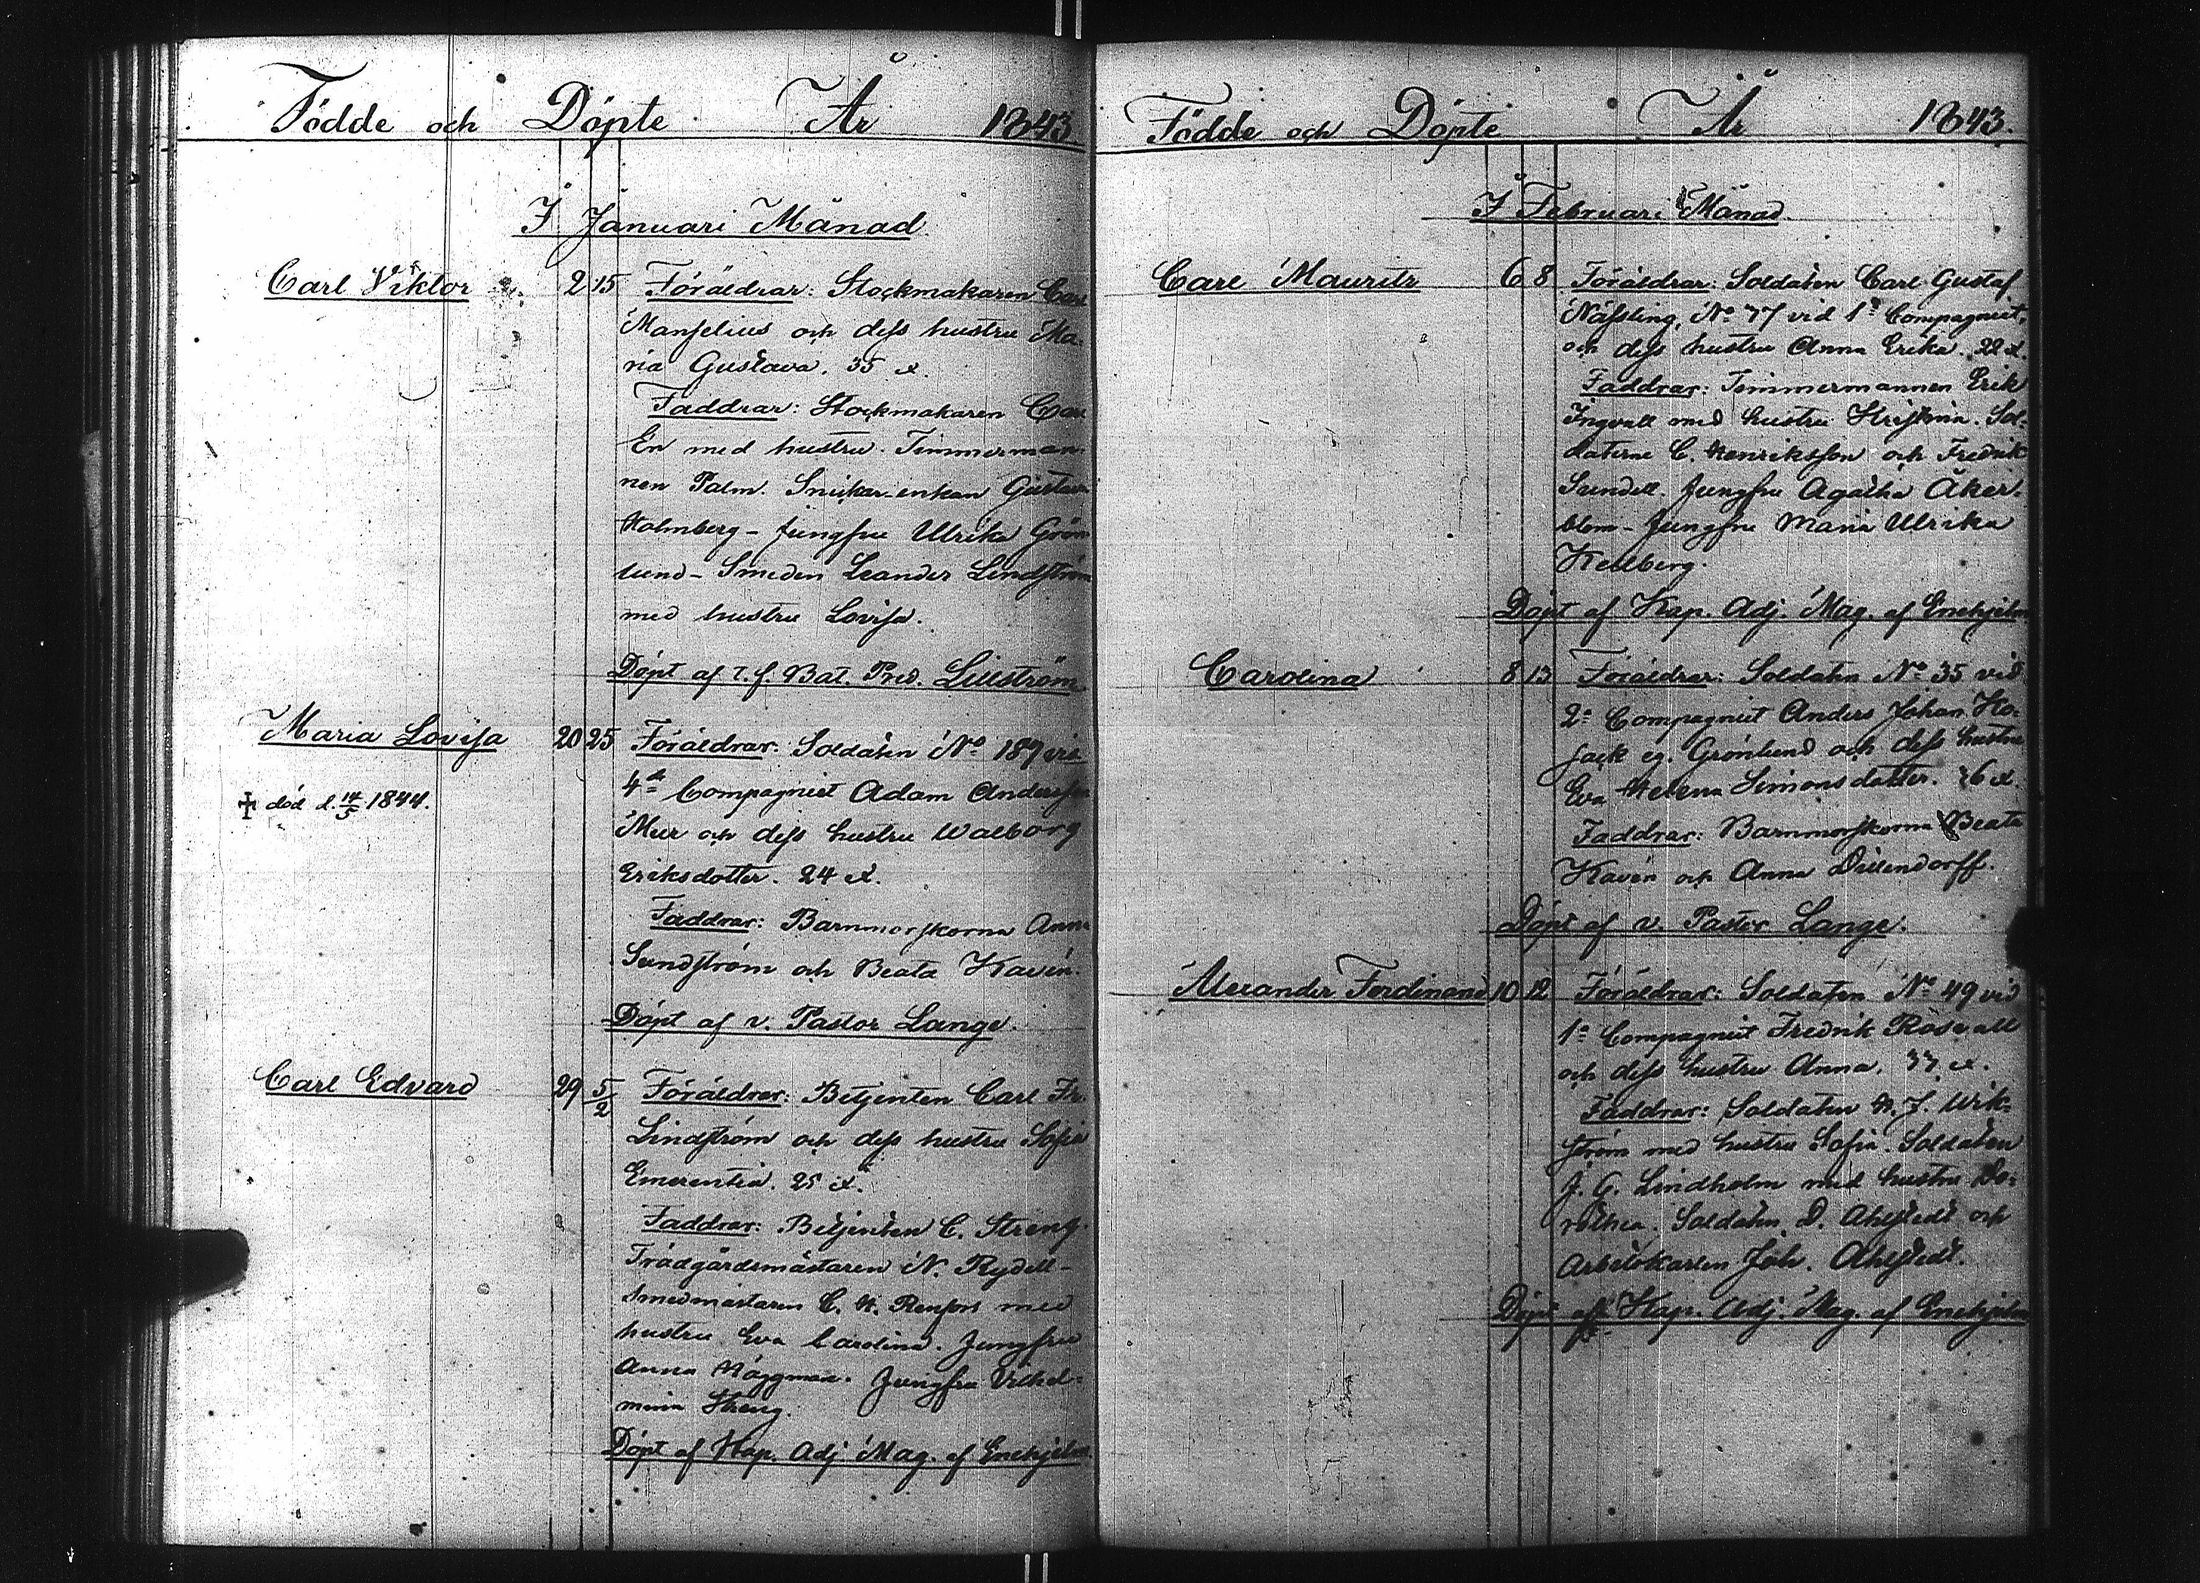 Födde och Döpte År 1843
I Januari Månad.
Carl Viktor 2 15 Föräldrar: Stockmakaren Carl
Manselius och dess hustru Ma-
ria Gustava. 35 å.
Faddrar: Stockmakaren Carl
En med hustru. Timmerman-
nen Palm. Snickar-enkan Gustava
Holmberg - Jungfru Ulrika Grön-
lund - Smeden Leander Lindström
med hustru Lovisa.
Döpt af t. f. Bat. Pred. Lillström
Maria Lovisa 20 25 Föräldrar: Soldaten No 189 vid
4de Compagniet Adam Andersson
Mur och dess hustru Walborg
Eriksdotter. 24 å.
✝ död d. 14/5 1844.
Faddrar: Barnmorskorna Anna
Sundström och Beata Kavén.
Döpt af v. Pastor Lange.
Carl Edvard 29 5/2 Föräldrar: Betjenten Carl Fr.
Lindström och dess hustru Sofia
Emerentia. 25 å.
Faddrar: Betjenten C. Streng.
Trädgårdsmästaren N. Rydell -
Smedmästaren C. H. Renfors med
hustru Eva Carolina. Jungfru
Anna Häggman. Jungfru Vilhel-
mina Streng.
Döpt af Kap. Adj. Mag. af Enehjelm.
Födde och Döpte År 1843.
I Februari Månad.
Carl Mauritz 6 8 Föräldrar: Soldaten Carl Gustaf
Nässling, No 77 vid 1a Compagniet,
och dess hustru Anna Erika. 22 å.
Faddrar: Timmermannen Erik
Ingvall med hustru Kristina. Sol-
daterne C. Henriksson och Fredrik
Sundell. Jungfru Agatha Åker-
blom - Jungfru Maria Ulrika
Hellberg.
Döpt af Kap. Adj. Mag. af Enehjelm
Carolina 8 13 Föräldrar: Soldaten No 35 vid
2a Compagniet Anders Johan Ko-
jack eg. Grönlund och dess hustru
Eva Helena Simonsdotter. 26 å.
Faddrar: Barnmorskorna Beata
Kavén och Anna Dillendorff.
Döpt af v. Pastor Lange.
Alexander Ferdinand 10 12 Föräldrar: Soldaten No 49 vid
1a Compagniet Fredrik Rosvall
och dess hustru Anna, 33 å.
Faddrar: Soldaten H. J. Wik-
ström med hustru Sofia. Soldaten
J. G. Lindholm med hustru Do-
rothea. Soldaten D. Ahlstedt och
Arbetskarlen Joh. Ahlstedt.
Döpt af Kap. Adj. Mag. af Enehjelm